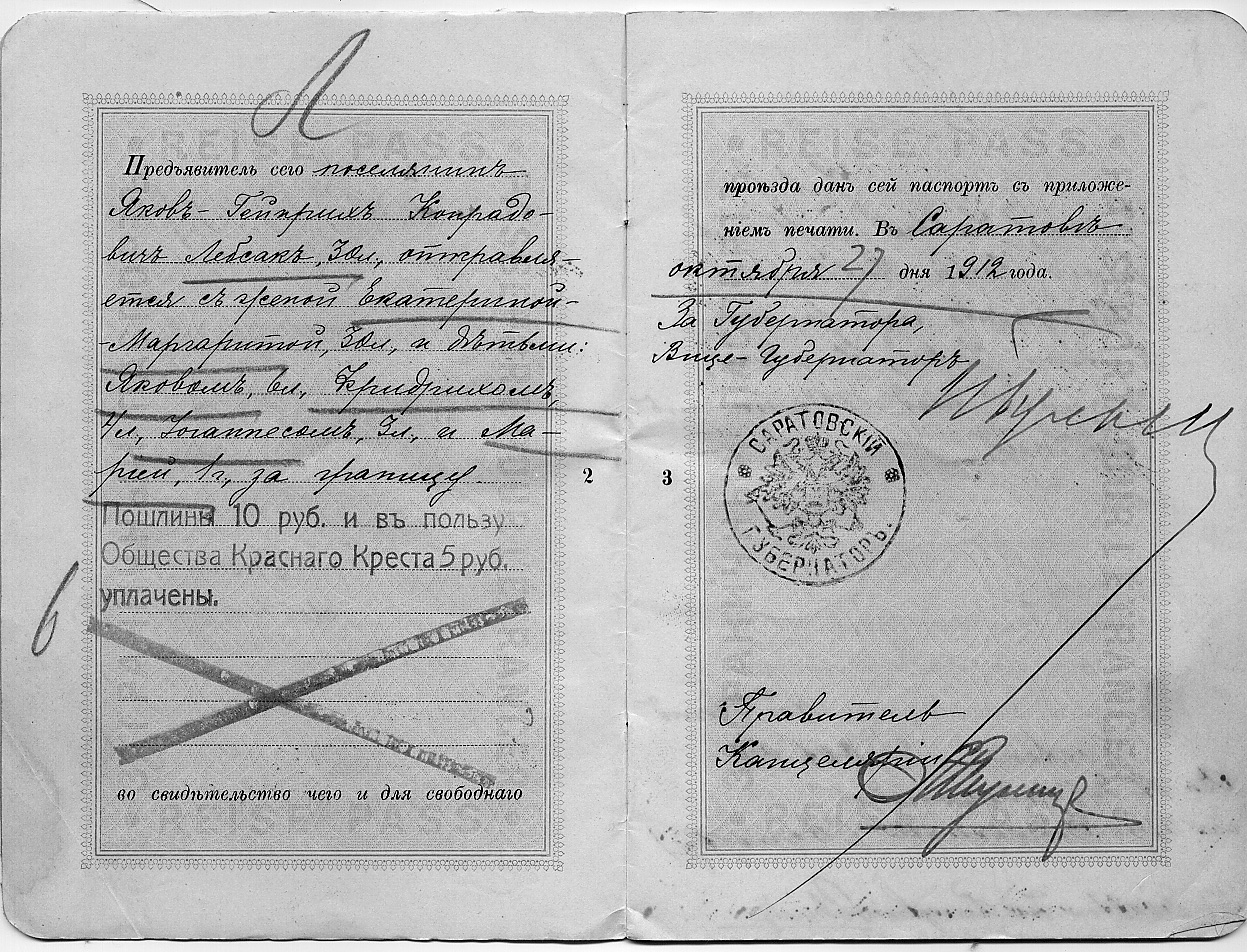 Л
REISE-PASS
Предъявитель сего поселянинъ
Яковъ-Гейнрихъ Конрадо-
вичъ Лебсакъ, 30л., отправля-
ется съ женой Екатериной-
-Маргаритой, 30л., и дѣтьми:
Яковомъ, 6л., Фридрихомъ,
4л., Іоганнесомъ, 3л., и Ма-
ріей, 1г., за границу.
Пошлины 10 руб. и въ пользу
Общества Краснаго Креста 5 руб.
уплачены.
6
во свидѣтельство чего и для свободнаго
REISE-PASS
2
REISE-PASS
проѣзда данъ сей паспортъ съ приложе-
ніемъ печати. Въ Саратовѣ
октября 27 дня 1912 года.
За Губернатора,
Вице-Губернаторъ
САРАТОВСКІЙ
ГУБЕРНАТОРЪ.
3
Правитель
Канцеляріи